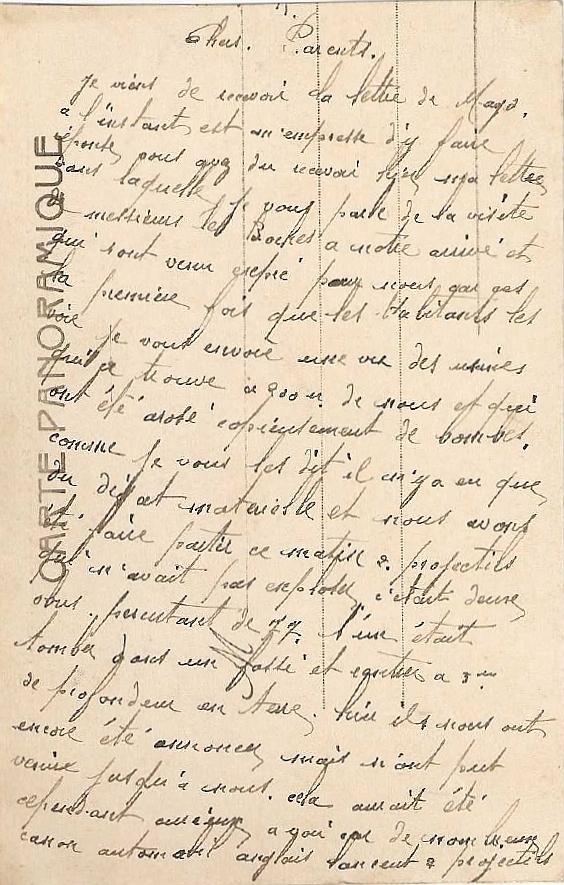 Chers. Parents.
Je viens de recevoir la lettre de
a l'instant est m'empresse d'y faire
réponse, vous avez du recevoir hier ma lettre
dans laquelle, je vous parle de la visite
de messieurs les Boches a notre arrivé et
qui sont venu exprès pour nous car ces
la première fois que les Habitants les
voie je vous envoie une vue des usines
qui ce trouve a 200 m. de nous et qui
ont été arosé copieusement de bombes.
comme je vous les dit il n'y a eu que
du dégat materielle et nous avons
été faire partir ce matin 2. projectils
qui n'avait pas explosé, c'était deux
obus. percutant de 77. l'un était
tomber dans un fossé et rentrer a 3 m
de profondeur en terre. hier ils nous ont
encore été annoncer mais n'ont put
venir jusqu'à nous. cela aurait été
cependant curieux a voir car de nombreux
canon automobil anglais lancent 2 projectils
CARTE PANORAMIQUE